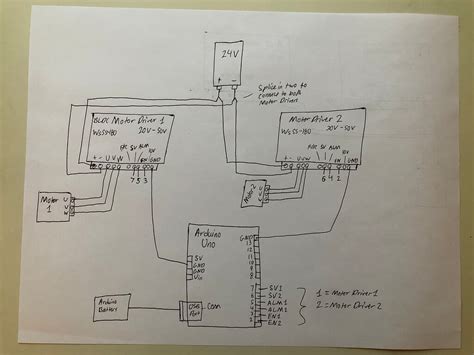 24V
+ -
Splice in two to
connect to both
Motor Drivers
BLDC Motor Driver 1
WS55-180 20V - 50V
F/R SV ALM
+ - U V W EN GND
7 5 3
Motor Driver 2
WS55-180 20V - 50V
F/R SV ALM
+ - U V W EN GND
6 4 2
Motor
1
U
V
W
Motor
2
U
V
W
Arduino
Uno
GND
13
12
11
10
9
8
5V
GND
GND
Vin
7 SV1
6 SV2
5 ALM1
4 ALM2
3 EN1
2 EN2
1 = Motor Driver 1
2 = Motor Driver 2
Arduino
Battery
USB
Port
Com